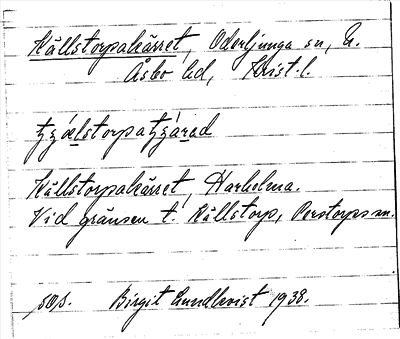 Källstorpakärret, Oderljunga sn, N.
Åsbo hd, Krist. l.
Källstorpakärret, Harholma.
Vid gränsen t. Källstorp, Perstorps sn.
sos. Birgit Lundkvist 1938.